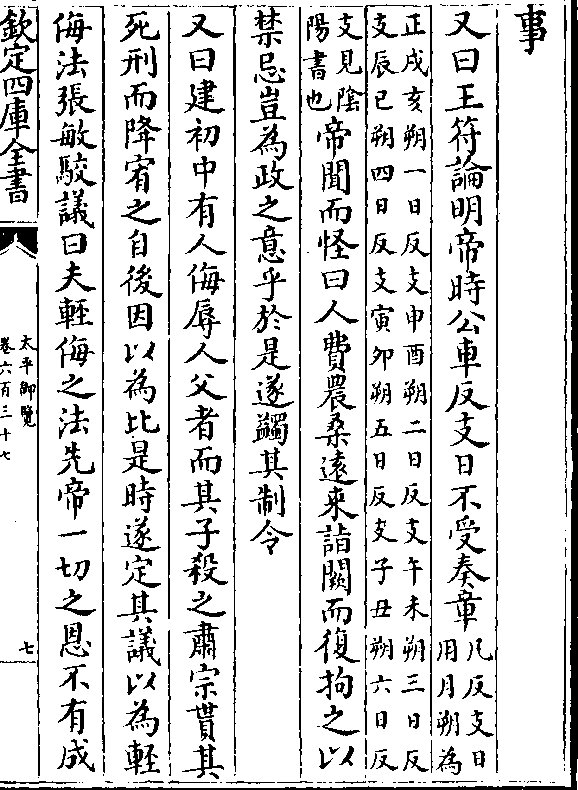 事
又曰王符論明帝時公車反支日不受奏章凡反支日
用月朔為
正戌亥朔一日反支申酉朔二日反支午未朔三日反
支辰巳朔四日反支寅卯朔五日反支子丑朔六日反
支見陰
陽書也帝聞而怪曰人費農桑遠來詣闕而復拘之以
禁忌豈為政之意乎於是遂蠲其制令
又曰建初中有人侮辱人父者而其子殺之肅宗貰其
死刑而降宥之自後因以為比是時遂定其議以為輕
侮法張敏駮議曰夫輕侮之法先帝一切之恩不有成
欽定四庫全書
太平御覽
卷六百三十七
七